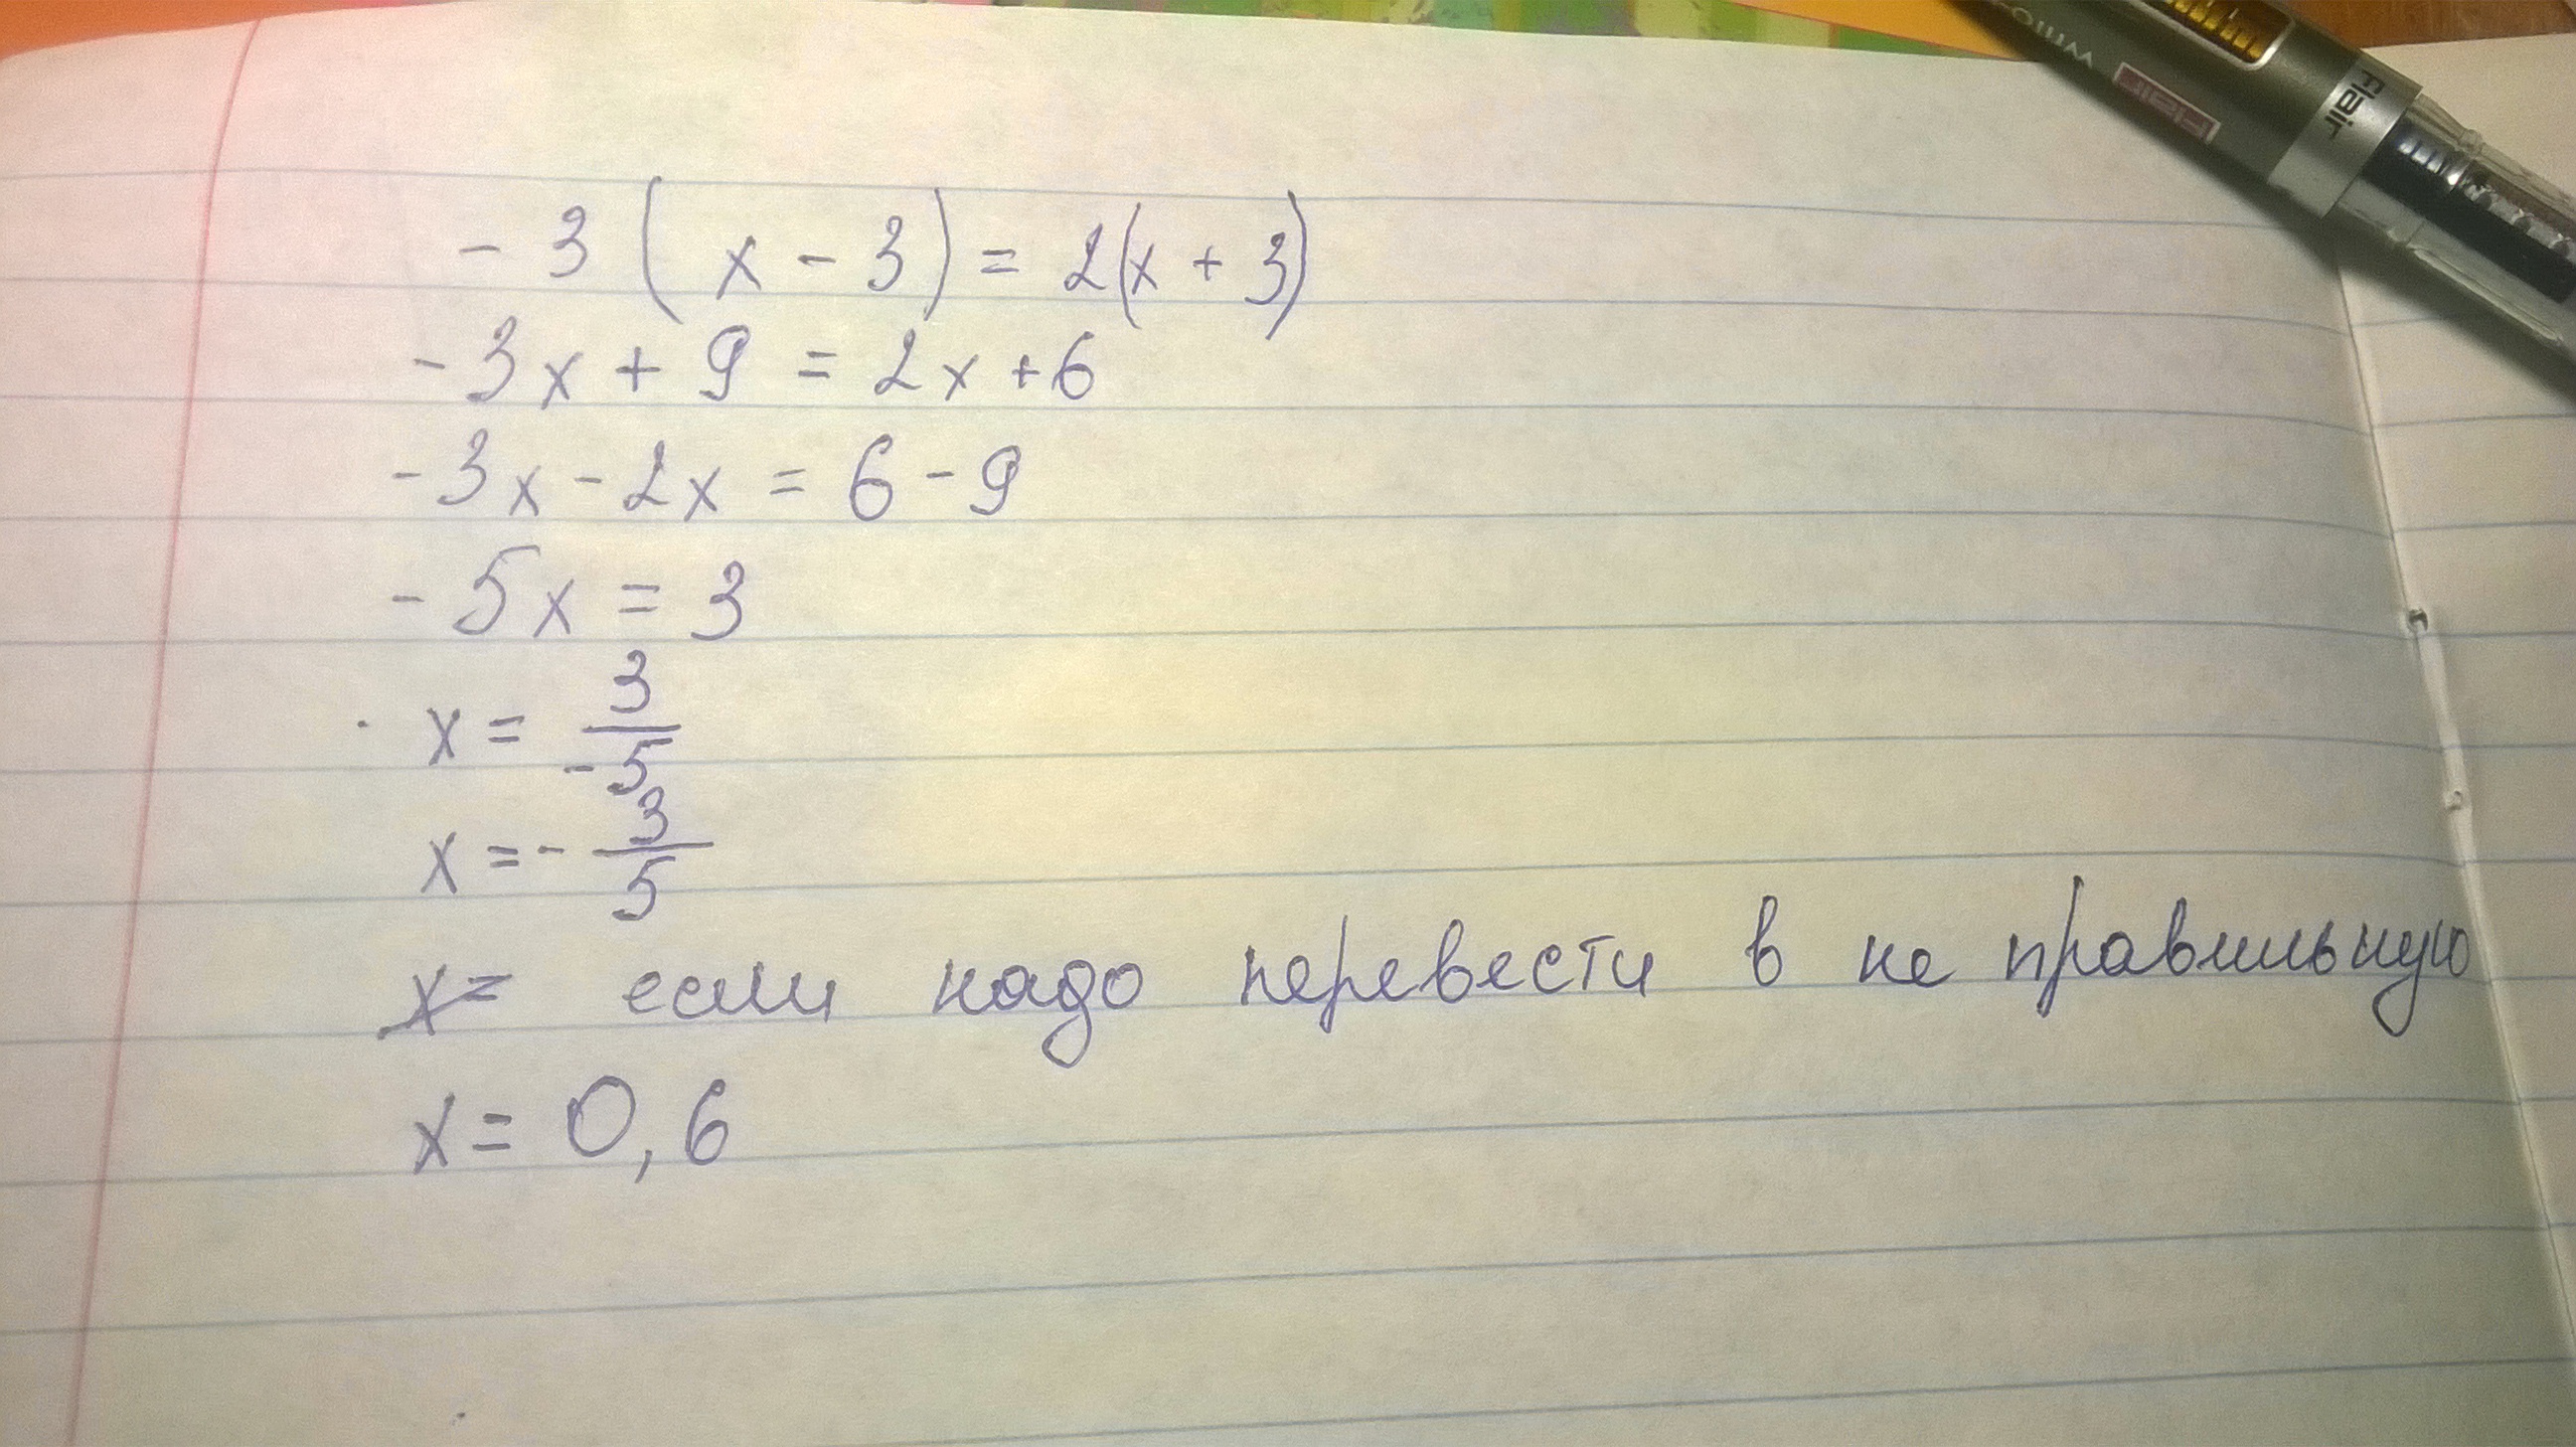 - 3 ( x - 3) = 2(x + 3)
- 3x + 9 = 2x + 6
- 3x - 2x = 6 - 9
- 5x = 3
x = 3/-5
x = - 3/5
x= если надо перевести в не правильную
x = 0,6
Flair
Flair